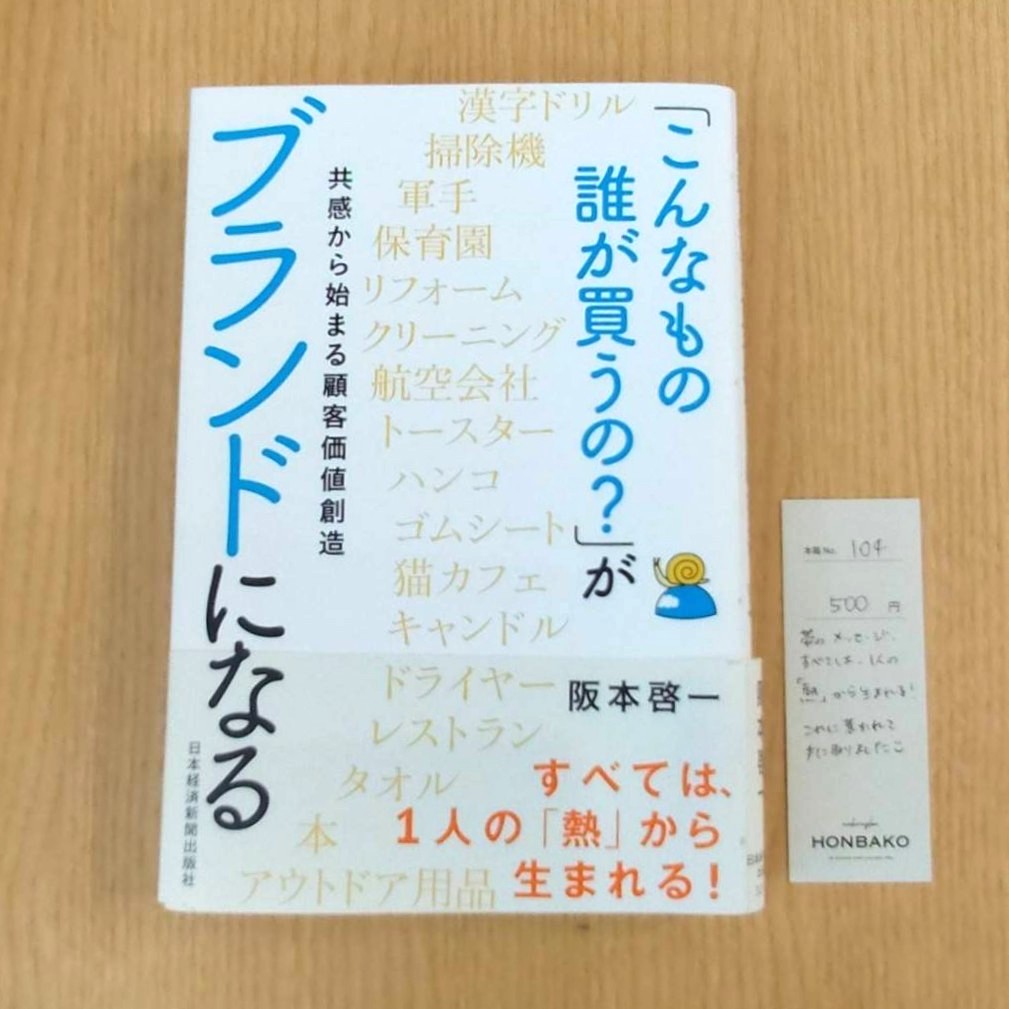 「こんなもの
誰が買うの？」が
ブランドになる
共感から始まる顧客価値創造
漢字ドリル
掃除機
軍手
保育園
リフォーム
クリーニング
航空会社
トースター
ハンコ
ゴムシート
猫カフェ
キャンドル
ドライヤー
レストラン
タオル
本
アウトドア用品
阪本啓一
すべては、
1人の「熱」から
生まれる！
日本経済新聞出版社
本箱No. 104
500 円
帯のメッセージ、
すべては、1人の
「熱」から生まれる！
これに惹かれて
すぐ取りました
HONBAKO